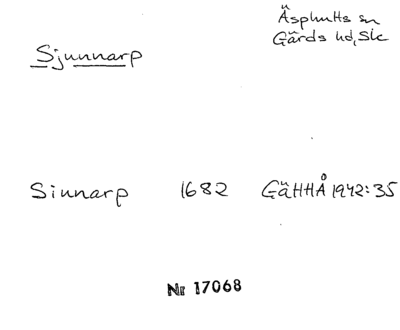 Äsphults sn
Gärds hd, Sk
Sjunnarp
Sinnarp 1682 GäHHÅ 1942:35
Nr 17068